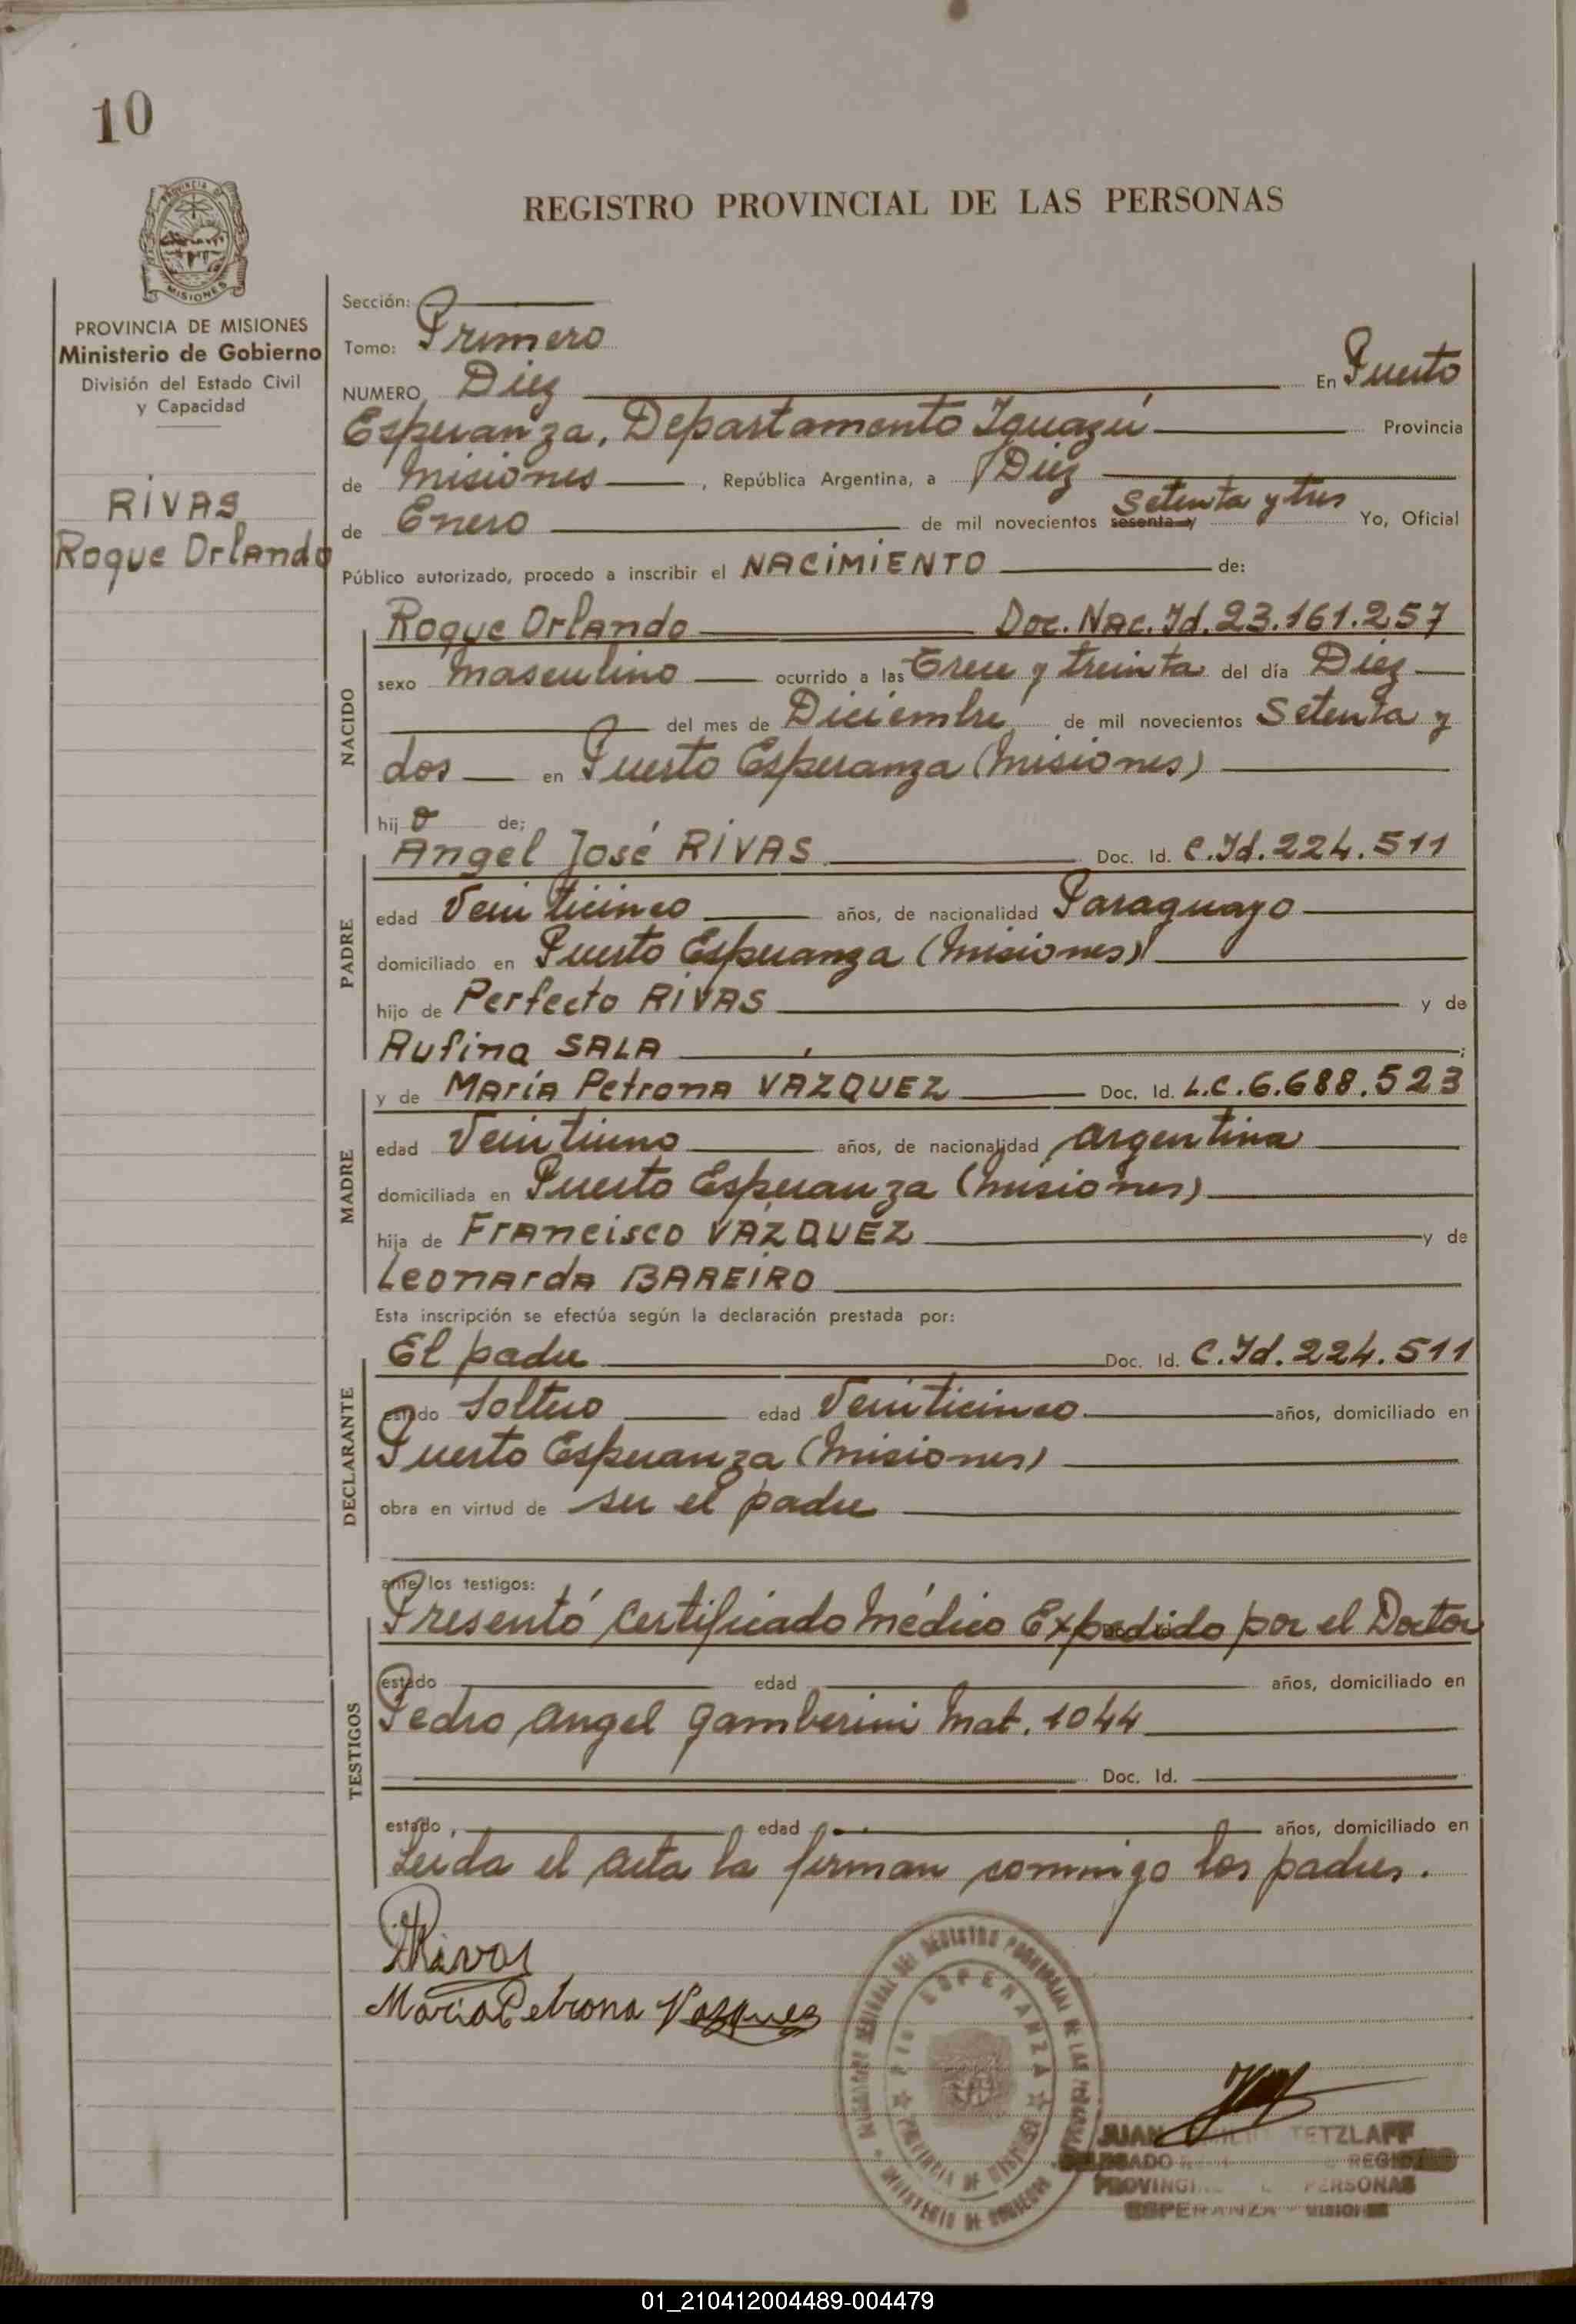 10
PROVINCIA DE MISIONES
REGISTRO PROVINCIAL DE LAS PERSONAS
PROVINCIA DE MISIONES
Ministerio de Gobierno
División del Estado Civil
y Capacidad
RIVAS
Roque Orlando
Sección:
Tomo: Primero
NUMERO Diez En Puerto
Esperanza, Departamento Iguazú Provincia
de Misiones, República Argentina, a Diez
de Enero de mil novecientos sesenta y Setenta y tres Yo, Oficial
Público autorizado, procedo a inscribir el NACIMIENTO de:
NACIDO
Roque Orlando Doc. Nac. Id. 23.161.257
sexo masculino ocurrido a las Trece y treinta del día Diez
del mes de Diciembre de mil novecientos Setenta y
dos en Puerto Esperanza (Misiones)
hijo de;
PADRE
Angel José RIVAS Doc. Id. C.Id. 224.511
edad Veinticinco años, de nacionalidad Paraguayo
domiciliado en Puerto Esperanza (Misiones)
hijo de Perfecto RIVAS y de
Rufina SALA;
MADRE
y de María Petrona VAZQUEZ Doc. Id. L.C. 6.688.523
edad Veintiuno años, de nacionalidad argentina
domiciliada en Puerto Esperanza (Misiones)
hija de Francisco VAZQUEZ y de
Leonarda BAREIRO
Esta inscripción se efectúa según la declaración prestada por:
DECLARANTE
El padre Doc. Id. C.Id. 224.511
estado Soltero edad Veinticinco años, domiciliado en
Puerto Esperanza (Misiones)
obra en virtud de ser el padre
ante los testigos:
TESTIGOS
Presentó Certificado Médico Expedido por el Doctor
estado edad años, domiciliado en
Pedro Angel Gamberini Mat. 1044
Doc. Id.
estado, edad años, domiciliado en
Leida el acta la firman conmigo los padres.
ARivas
Maria Petrona Vazquez
REGISTRO PROVINCIAL DE LAS PERSONAS
ESPERANZA
PROVINCIA DE MISIONES
MINISTERIO DE GOBIERNO
JUAN TETZLAFF
PERSONAS
ESPERANZA - MISIONES
01_210412004489-004479